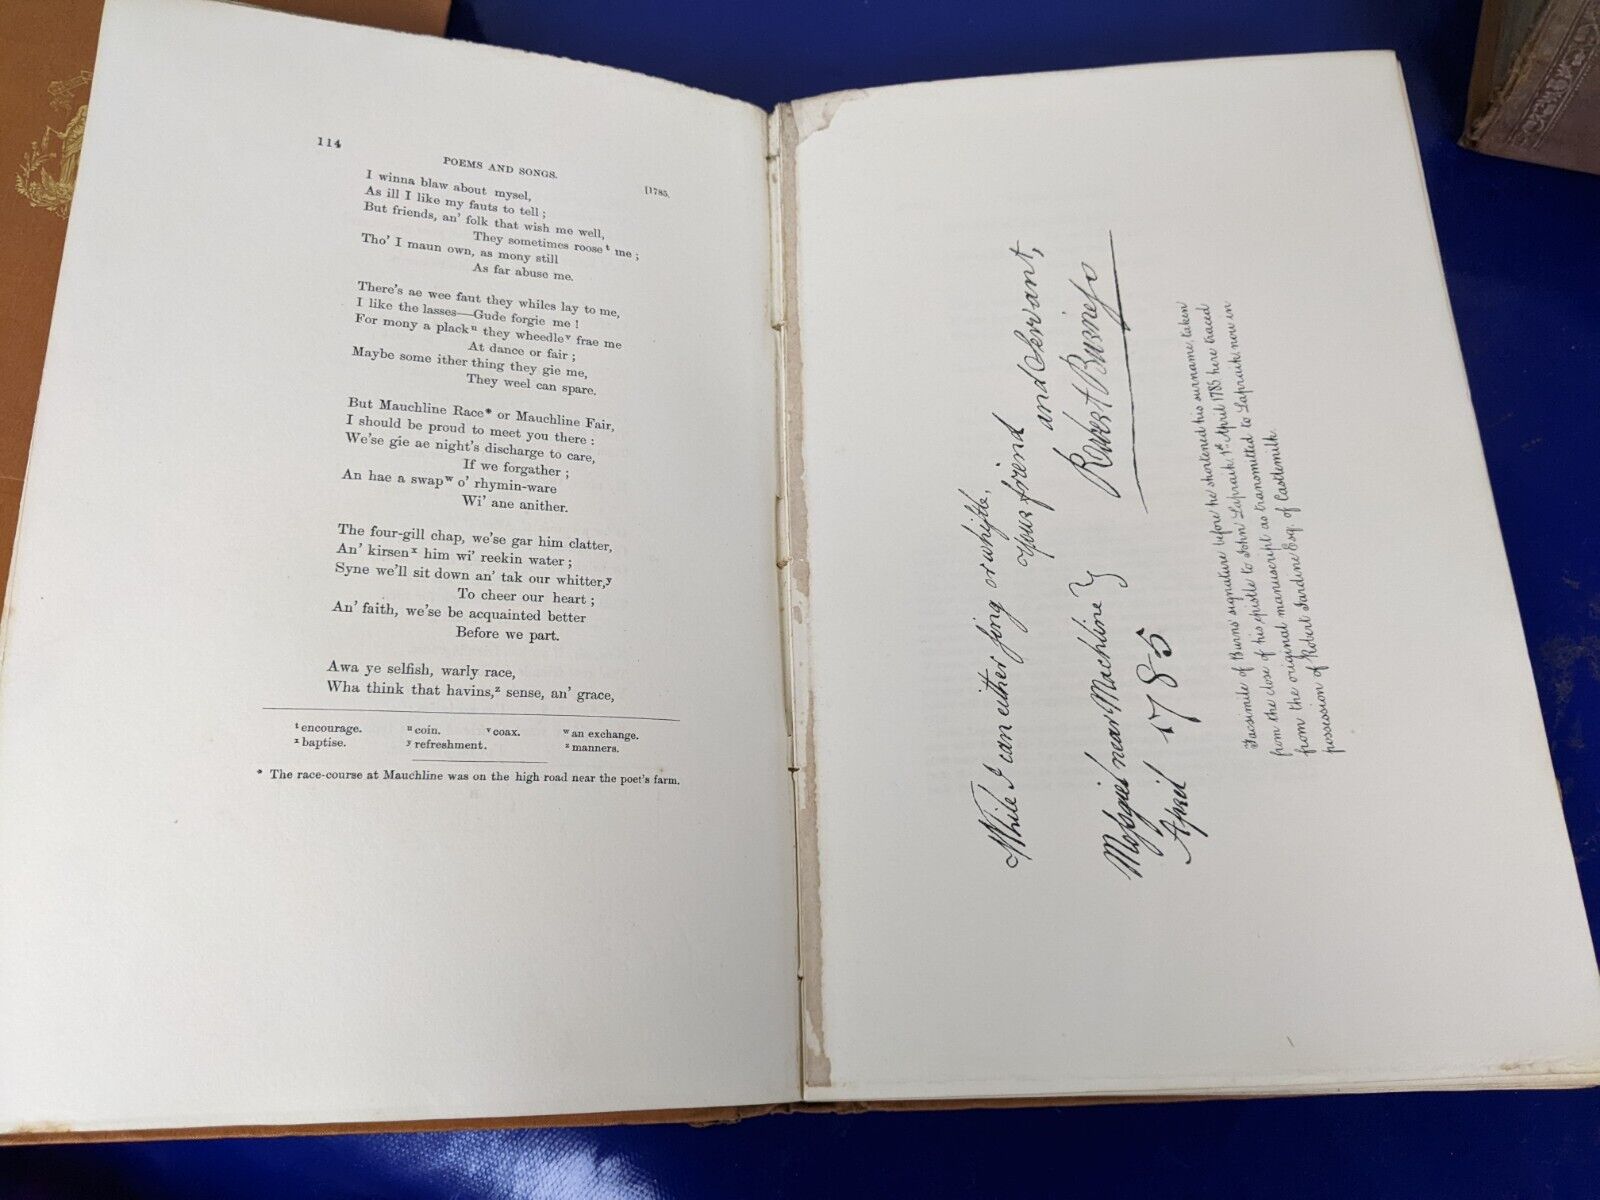 114
POEMS AND SONGS.
[1785.
I winna blaw about mysel,
As ill I like my fauts to tell;
But friends, an' folk that wish me well,
They sometimes roose t me;
Tho' I maun own, as mony still
As far abuse me.
There's ae wee faut they whiles lay to me,
I like the lasses—Gude forgie me!
For mony a plack u they wheedle v frae me
At dance or fair;
Maybe some ither thing they gie me,
They weel can spare.
But Mauchline Race* or Mauchline Fair,
I should be proud to meet you there:
We'se gie ae night's discharge to care,
If we forgather;
An hae a swap w o' rhymin-ware
Wi' ane anither.
The four-gill chap, we'se gar him clatter,
An' kirsen x him wi' reekin water;
Syne we'll sit down an' tak our whitter, y
To cheer our heart;
An' faith, we'se be acquainted better
Before we part.
Awa ye selfish, warly race,
Wha think that havins, z sense, an' grace,
t encourage. u coin. v coax. w an exchange.
x baptise. y refreshment. z manners.
* The race-course at Mauchline was on the high road near the poet's farm.
While I can either sing, or whistle,
Your friend
and Servant,
Robert Burness
Mossgiel near Machline }
April 1785
Facsimile of Burns' signature before he shortened his surname, taken
from the close of his epistle to John Lapraik, 1st April 1785, here traced
from the original manuscript as transmitted to Lapraik, now in
possession of Robert Jardine Esq. of Castlemilk.